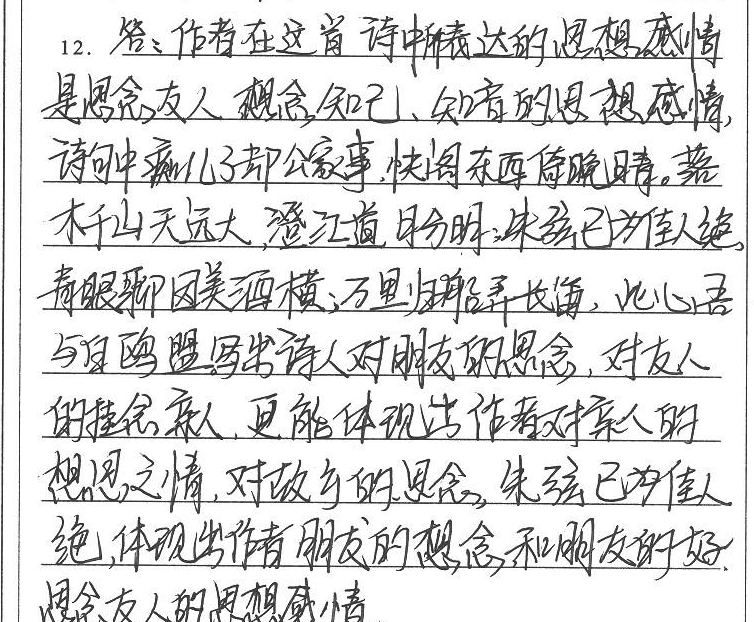 12. 答:作者在这首诗中所表达的思想感情
是思念友人 想念知己、知音的思想感情,
诗句中痴儿了却公家事,快阁东西倚晚晴。落
木千山天远大,澄江道月分明;朱弦已为佳人绝,
青眼聊因美酒横;万里归船弄长笛,此心吾
与白鸥盟写出诗人对朋友的思念,对友人
的挂念亲人,更能体现出作者对亲人的
想思之情,对故乡的思念。朱弦已为佳人
绝,体现出作者朋友的想念,和朋友的好
思念友人的思想感情